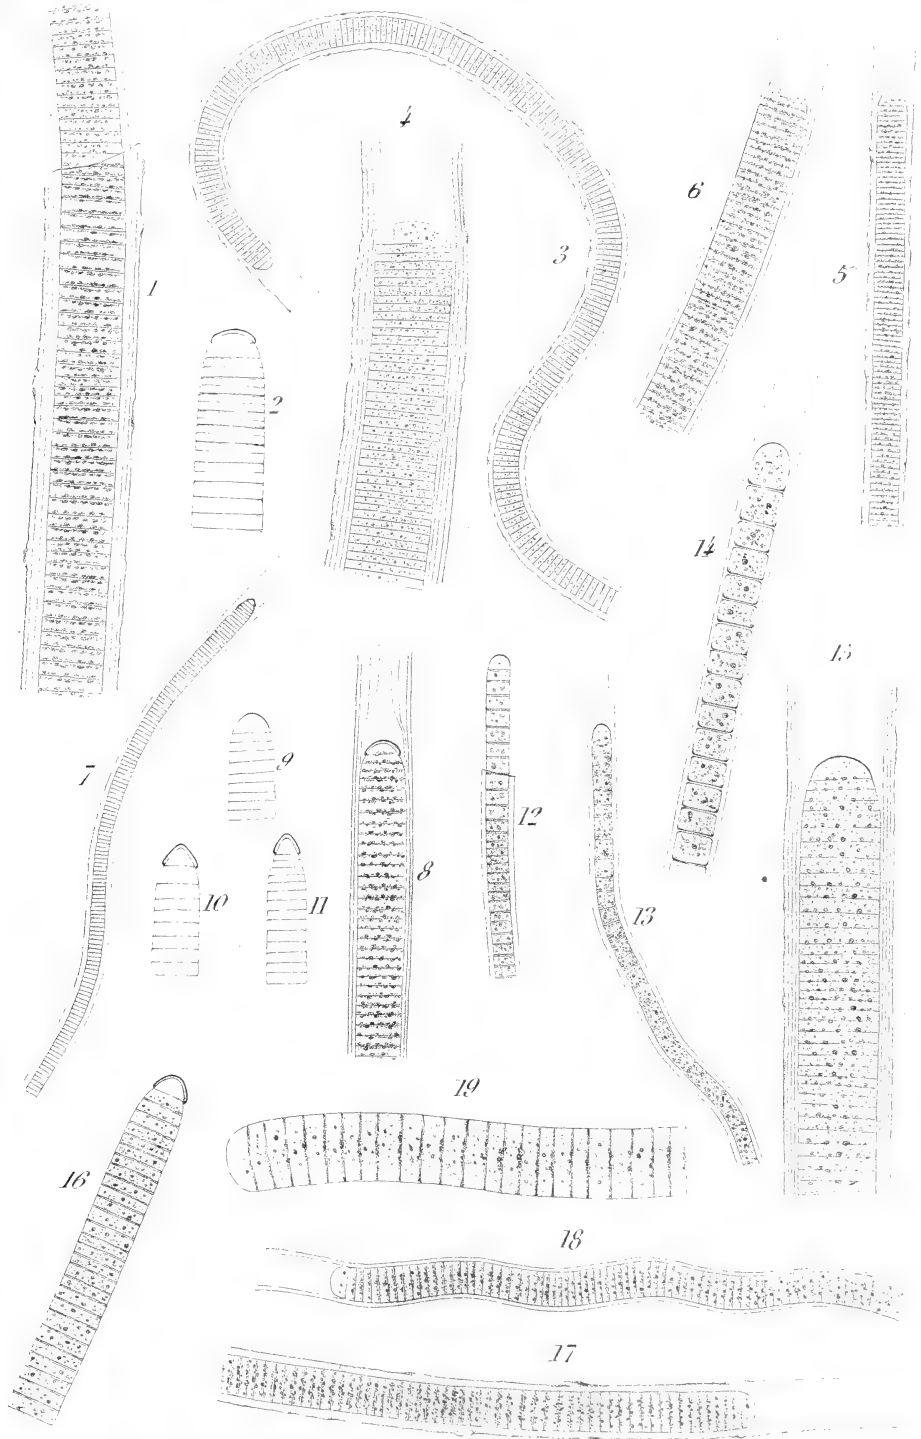 4
6
3
5
1
2
14
15
7
9
12
8
10
11
13
19
16
18
17